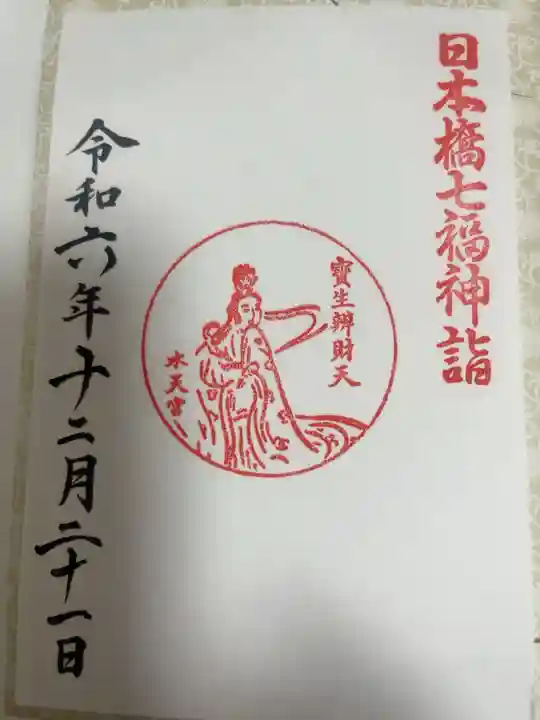 日本橋七福神詣
寳生辨財天
水天宮
令和六年十二月二十一日